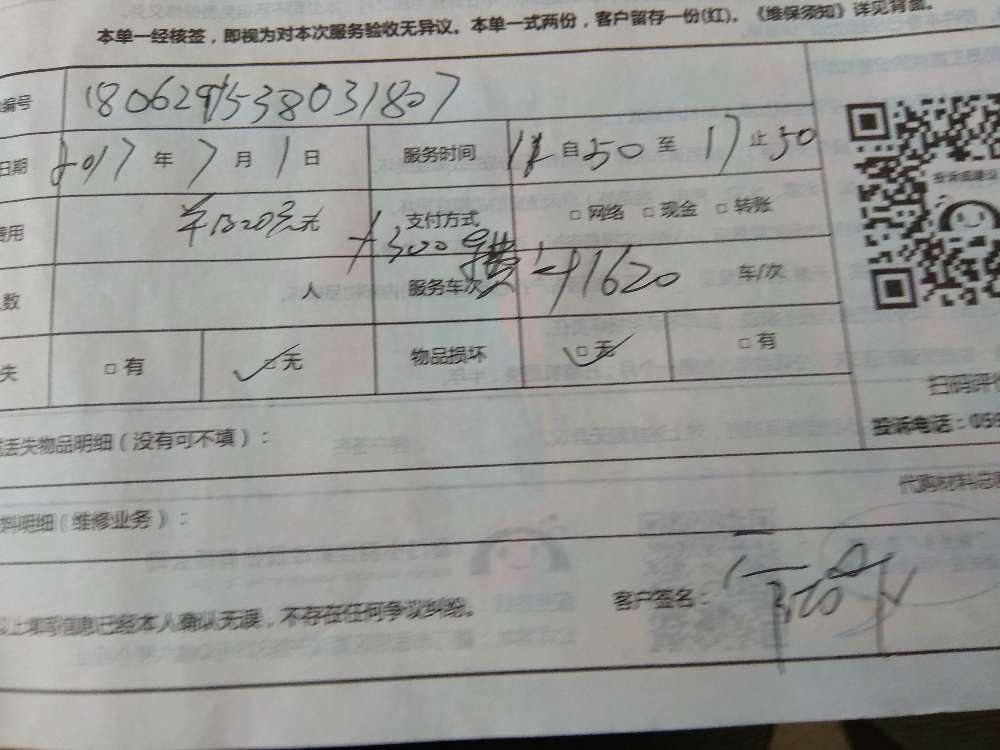 本单一经核签，即视为对本次服务验收无异议。本单一式两份，客户留存一份(红)。《维保须知》详见背面。
编号 1806291538031807
日期 2017 年 7 月 1 日 服务时间 自 50 至 17 止 30
费用 支付方式 □ 网络 □ 现金 □ 转账
+300
数 人 服务车次 1620 车/次
失 □ 有 □ 无 物品损坏 □ 无 □ 有
投诉或建议
扫码评价
投诉电话：056
丢失物品明细（没有可不填）：
代购材料总
料明细（维修业务）：
以上填写信息已经本人确认无误，不存在任何争议纠纷。 客户签名：